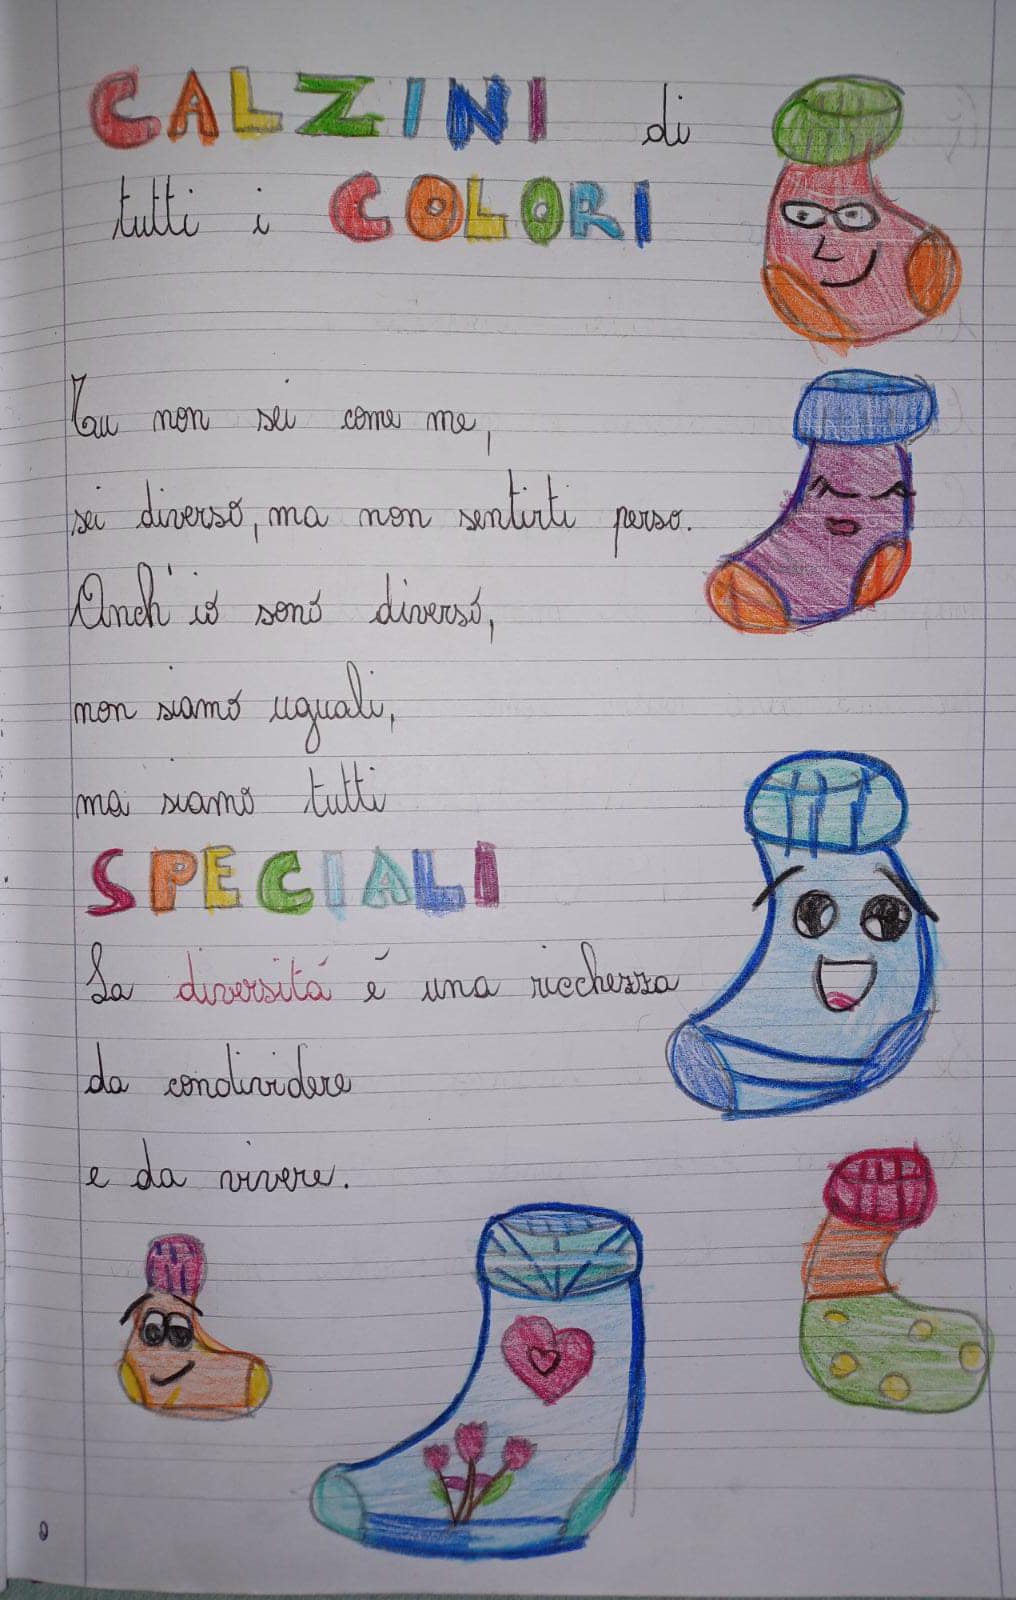 CALZINI di
tutti i COLORI
Tu non sei come me,
sei diverso, ma non sentirti perso.
Anch'io sono diverso,
non siamo uguali,
ma siamo tutti
SPECIALI
La diversitá é una ricchezza
da condividere
e da vivere.